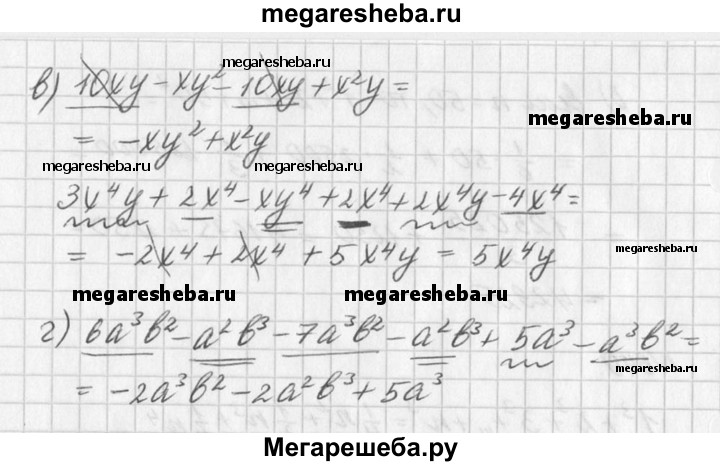 megaresheba.ru
в) 10xy − xy² − 10xy + x²y =
megaresheba.ru
megaresheba.ru
= −xy² + x²y
megaresheba.ru
megaresheba.ru
3x⁴y + 2x⁴ − xy⁴ + 2x⁴ + 2x⁴y − 4x⁴ =
= −2x⁴ + 2x⁴ + 5x⁴y = 5x⁴y
megaresheba.ru
megaresheba.ru
megaresheba.ru
г) 6a³b² − a²b³ − 7a³b² − a²b³ + 5a³ − a³b² =
= −2a³b² − 2a²b³ + 5a³
megaresheba.ru
Мегарешеба.ру